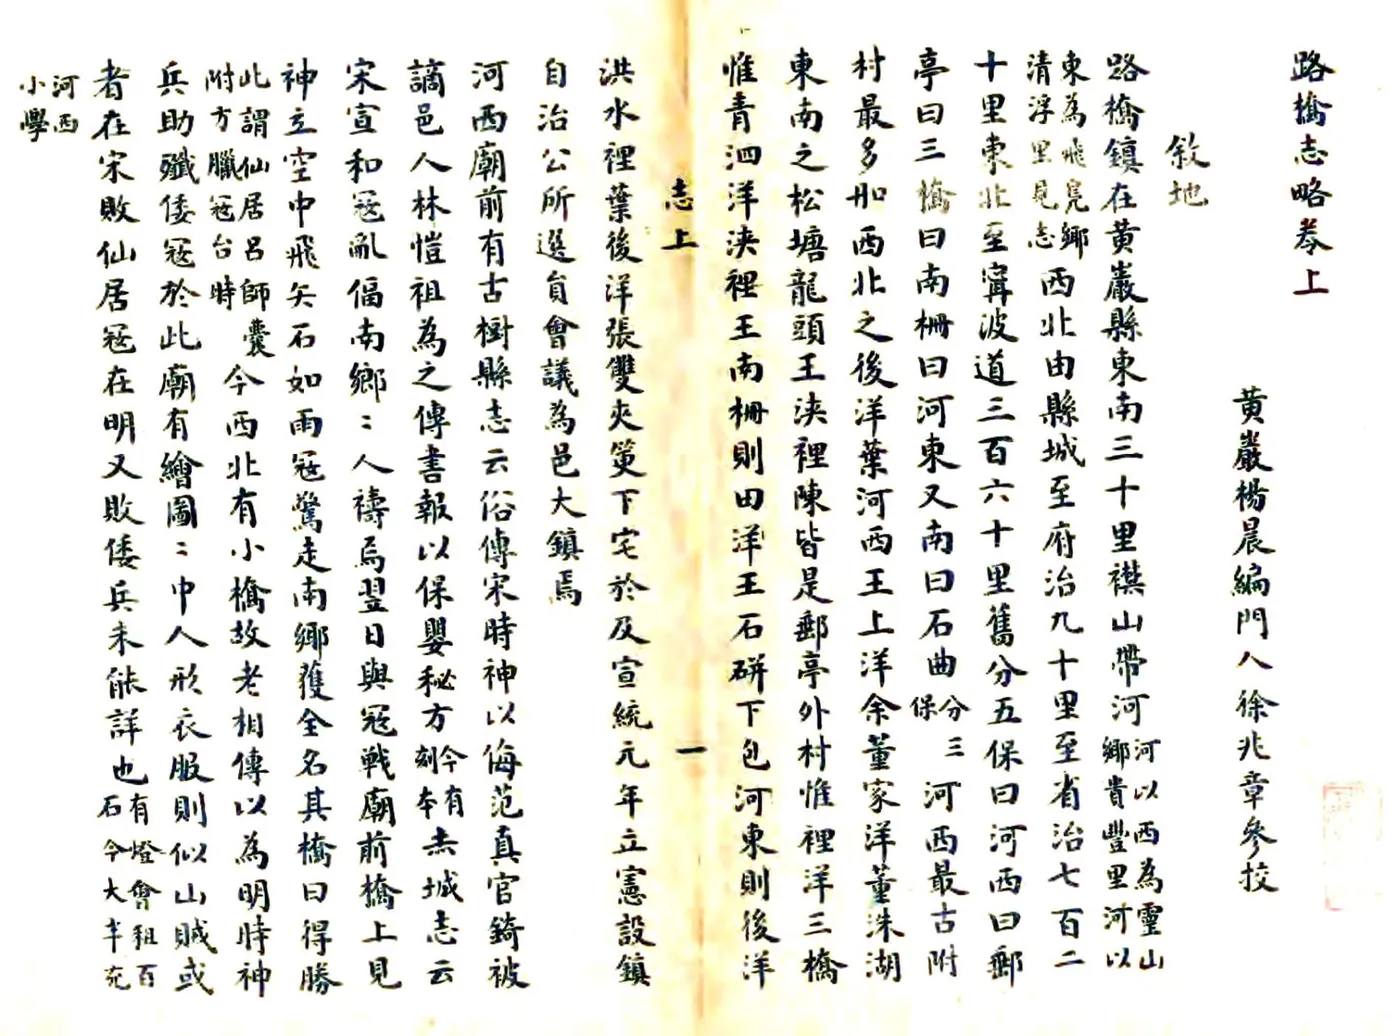 路橋志略卷上
黃巖楊晨編門人徐兆章參挍
敘地
路橋鎮在黃巖縣東南三十里襟山帶河河以西為靈山鄉貴豐里河以
東為飛鳧鄉清浮里見志西北由縣城至府治九十里至省治七百二
十里東北至甯波道三百六十里舊分五保曰河西曰郵
亭曰三橋曰南柵曰河東又南曰石曲分三保河西最古附
村最多如西北之後洋葉河西王上洋余董家洋董洙湖
東南之松塘龍頭王浹裡陳皆是郵亭外村惟裡洋三橋
惟青泗洋浹裡王南柵則田洋王石硑下包河東則後洋
志上
一
洪水裡葉後洋張雙夾筻下宅於及宣統元年立憲設鎮
自治公所選員會議為邑大鎮焉
河西廟前有古樹縣志云俗傳宋時神以侮范真官錡被
謫邑人林愷祖為之傳書報以保嬰秘方今有刻本赤城志云
宋宣和寇亂偪南鄉〻人禱焉翌日與寇戰廟前橋上見
神立空中飛矢石如雨寇驚走南鄉獲全名其橋曰得勝
此謂仙居呂師囊附方臘寇台時今西北有小橋故老相傳以為明時神
兵助殲倭寇於此廟有繪圖〻中人形衣服則似山賊或
者在宋敗仙居寇在明又敗倭兵未能詳也有燈會租百石今大半充
河西小學